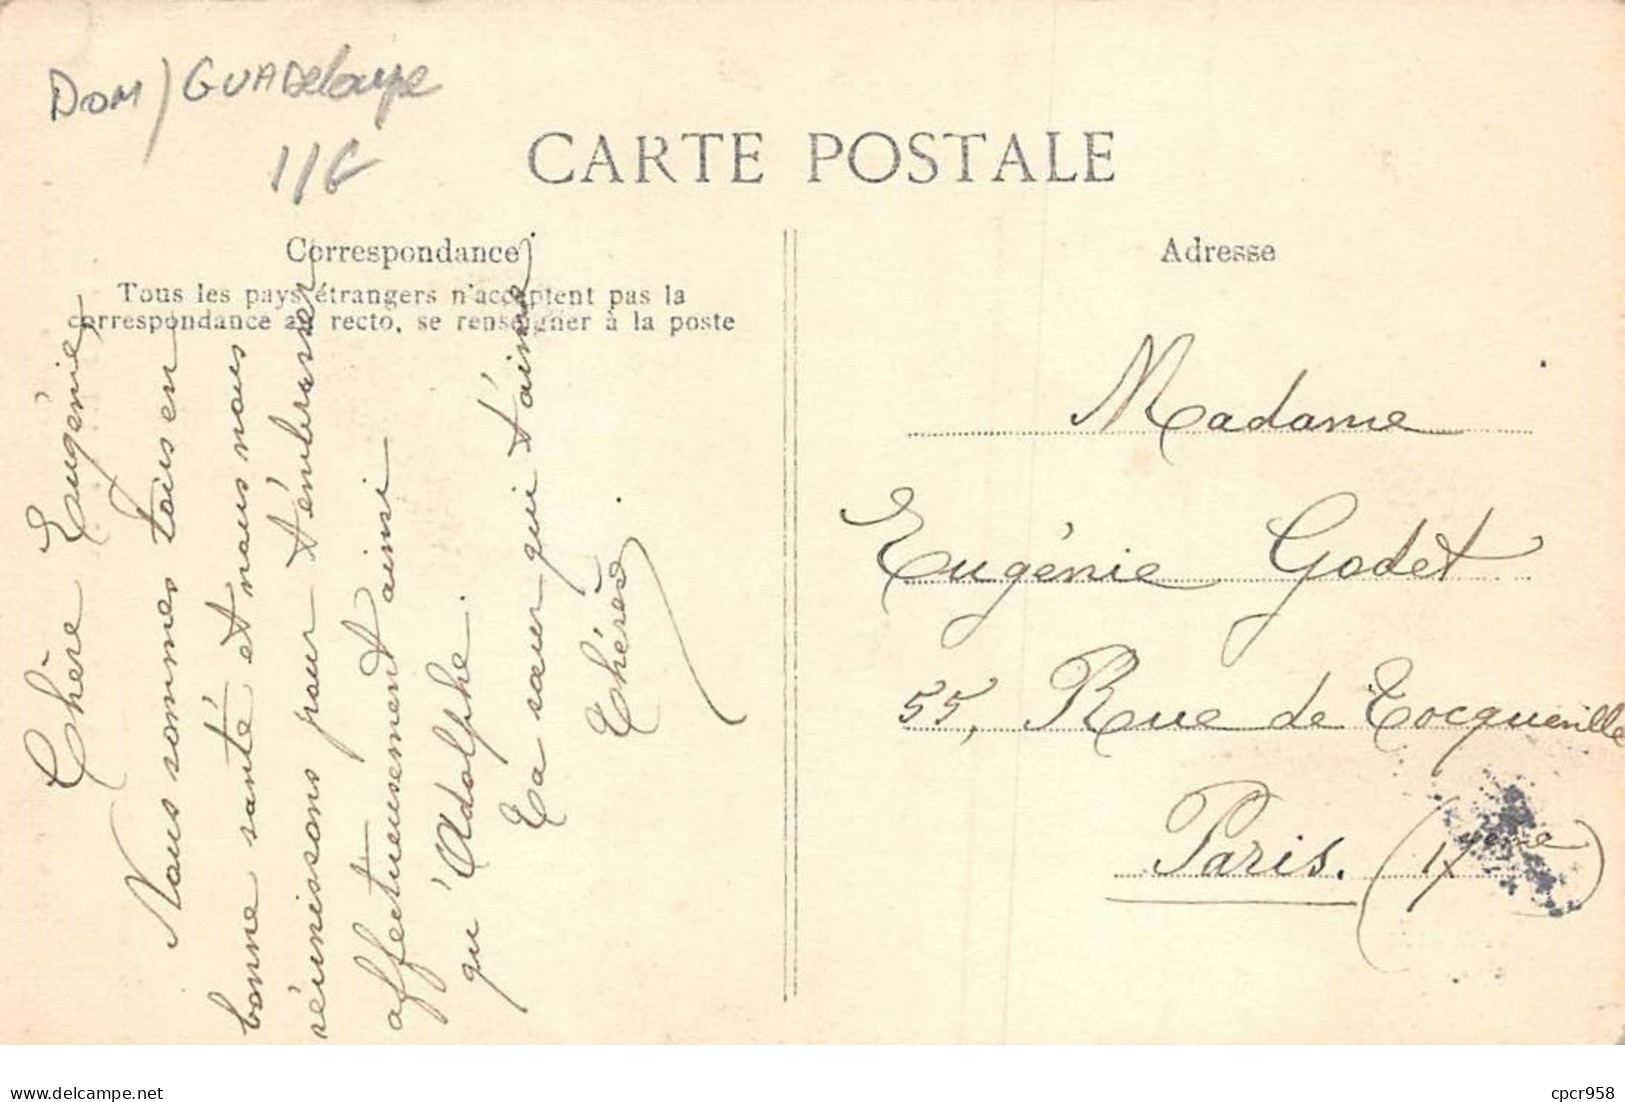 Dom / GUADeloupe
11€
CARTE POSTALE
Correspondance
Tous les pays étrangers n'acceptent pas la
correspondance au recto, se renseigner à la poste
Chère Eugénie,
Nous sommes tous en
bonne santé et nous nous
réunissons pour t'embrasser
affectueusement ainsi
qu'Adolphe.
Ta sœur qui t'aime
Thérèse
Adresse
Madame
Eugénie Godet
55, Rue de Tocqueville
Paris. (17ème)
www.delcampe.net
cpcr958